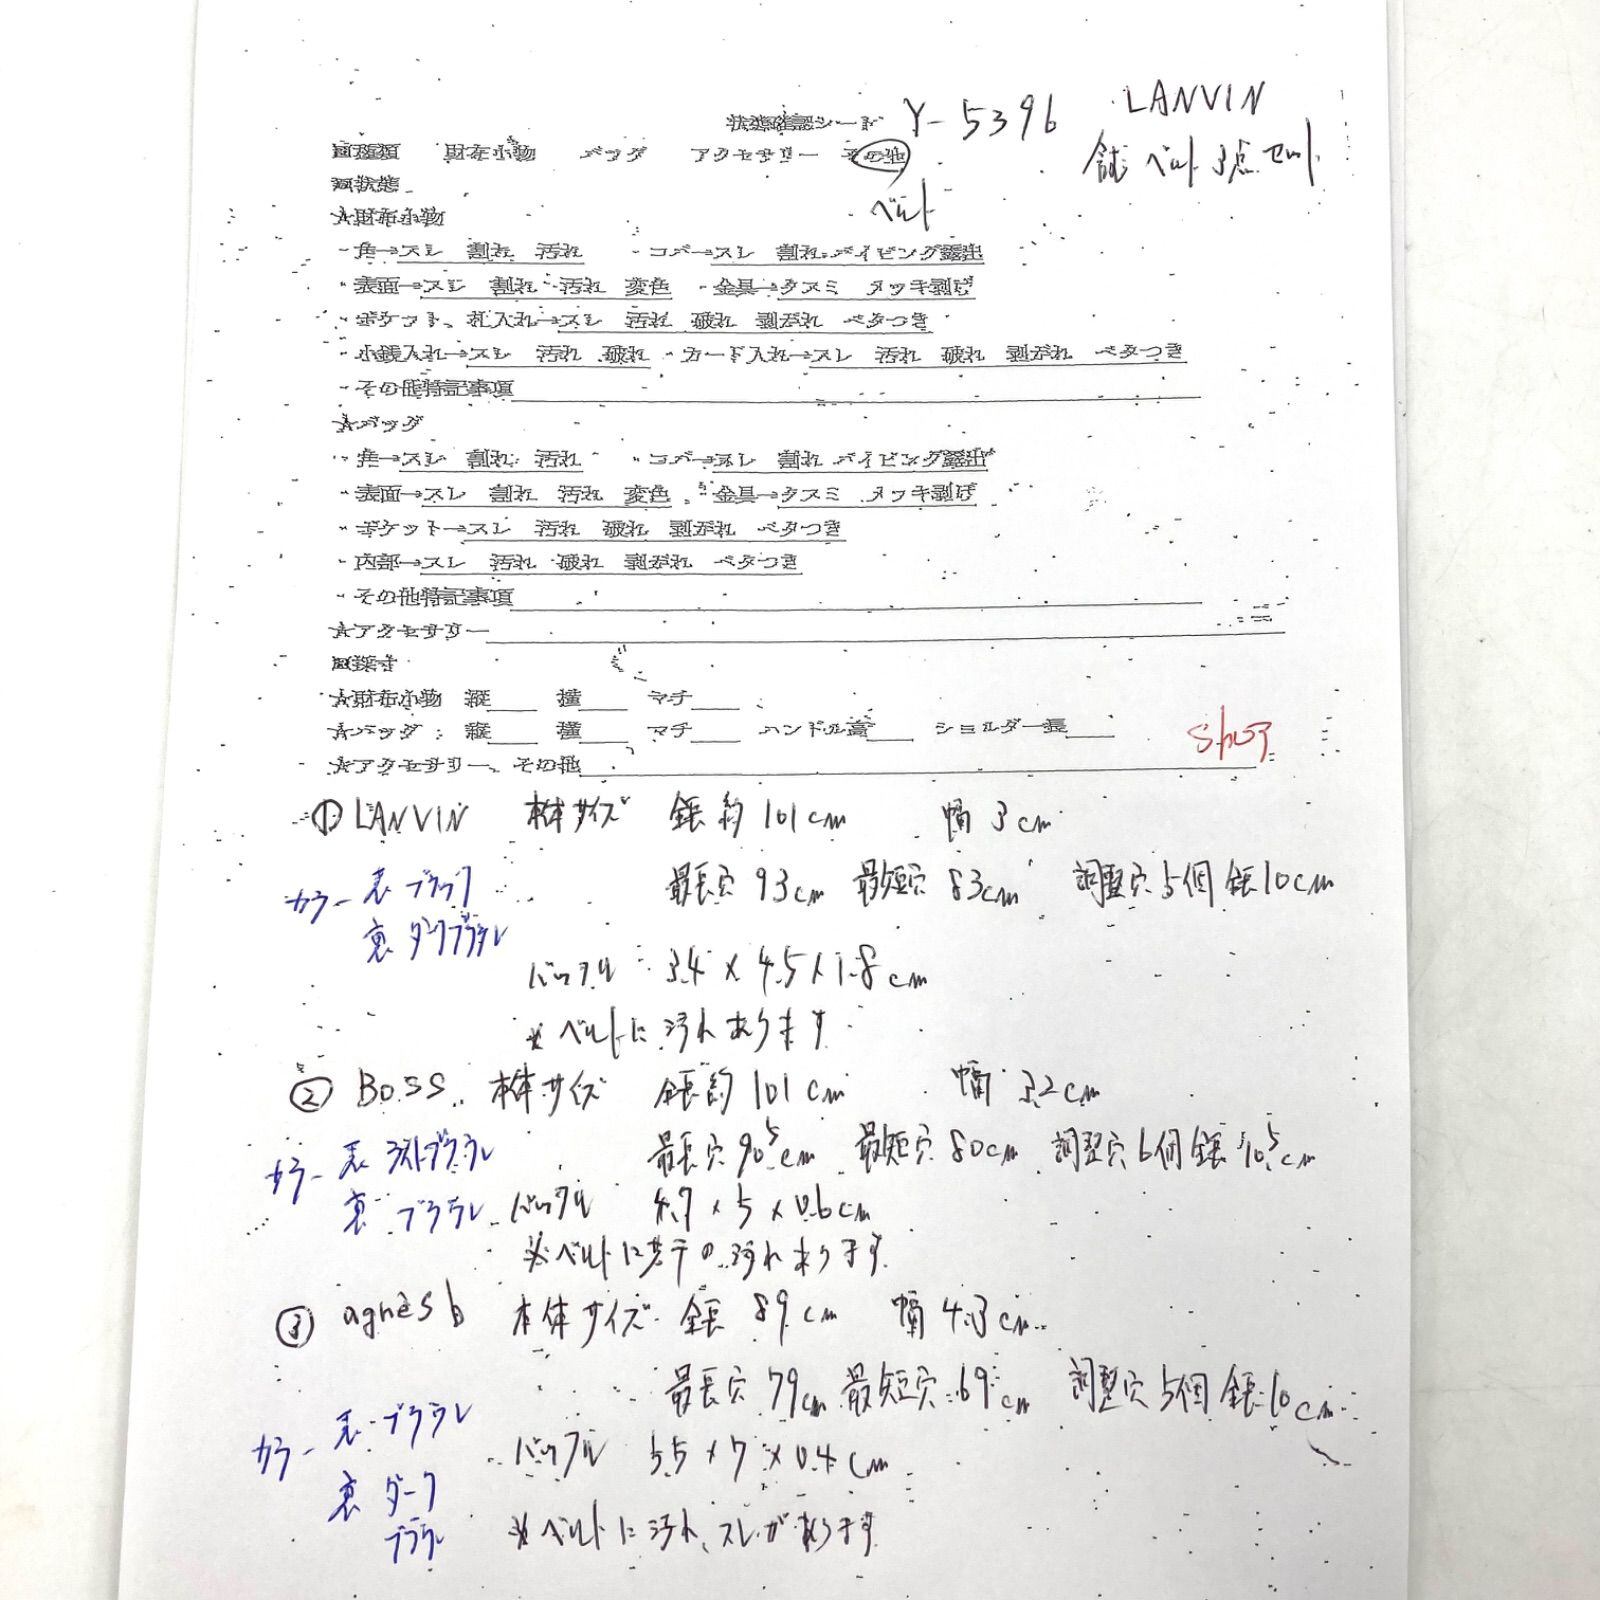 状態確認シート Y-5396 LANVIN
□種類 財布小物 バッグ アクセサリー その他
含む ベルト 3点セット
□状態
ベルト
★財布小物
・角→スレ 割れ 汚れ ・コバ→スレ 割れ パイピング露出
・表面→スレ 割れ 汚れ 変色 ・金具→クスミ メッキ剥げ
・ポケット、札入れ→スレ 汚れ 破れ 剥がれ ベタつき
・小銭入れ→スレ 汚れ 破れ ・カード入れ→スレ 汚れ 破れ 剥がれ ベタつき
・その他特記事項
★バッグ
・角→スレ 割れ 汚れ ・コバ→スレ 割れ パイピング露出
・表面→スレ 割れ 汚れ 変色 ・金具→クスミ メッキ剥げ
・ポケット→スレ 汚れ 破れ 剥がれ ベタつき
・内部→スレ 汚れ 破れ 剥がれ ベタつき
・その他特記事項
★アクセサリー
□採寸
★財布小物 縦 横 マチ
★バッグ:縦 横 マチ ハンドル高 ショルダー長
★アクセサリー、その他
① LANVIN 本体サイズ 全長約101cm 幅3cm
カラー 表 ブラック 最長穴93cm 最短穴83cm 調整穴5個 全長10cm
裏 ダークブラウン
バックル 3.4×4.5×1.8cm
※ベルトに汚れあります
② BOSS 本体サイズ 全長約101cm 幅3.2cm
カラー 表 ライトブラウン 最長穴90.5cm 最短穴80cm 調整穴6個 全長10.5cm
裏 ブラウン バックル 4.7×5×0.6cm
※ベルトに若干の汚れあります
③ agnès b 本体サイズ 全長89cm 幅4.3cm
最長穴79cm 最短穴69cm 調整穴5個 全長10cm
カラー 表 ブラウン
バックル 5.5×7×0.4cm
裏 ダーク
ブラウン ※ベルトに汚れ、スレがあります